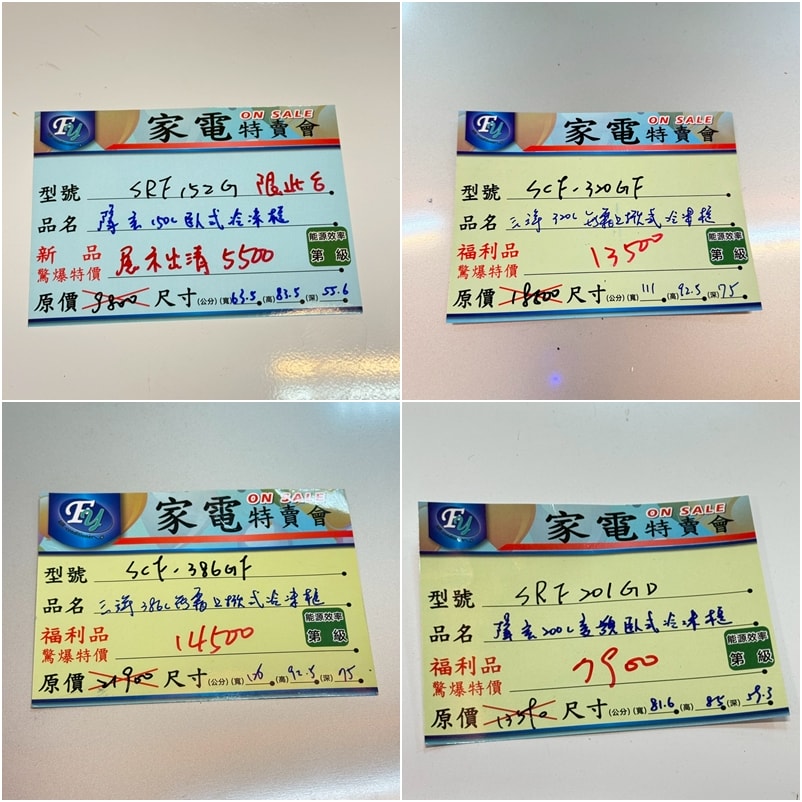 Fy 家電特賣會 ON SALE
型號 SRF152G 限此台
品名 150L臥式冷凍櫃
新品 驚爆特價 展示出清 5500
能源效率 第 級
原價 9800 尺寸(公分)(寬)63.5(高)83.5(深)55.6
Fy 家電特賣會 ON SALE
型號 SCF-320GF
品名 三洋320L無霜上掀式冷凍櫃
福利品 驚爆特價 13500
能源效率 第 級
原價 尺寸(公分)(寬)111(高)92.5(深)75
Fy 家電特賣會 ON SALE
型號 SCF-386GF
品名 三洋386L無霜上掀式冷凍櫃
福利品 驚爆特價 14500
能源效率 第 級
原價 21900 尺寸(公分)(寬)126(高)92.5(深)75
Fy 家電特賣會 ON SALE
型號 SRF201GD
品名 200L變頻臥式冷凍櫃
福利品 驚爆特價 7900
能源效率 第 級
原價 尺寸(公分)(寬)81.6(高)85(深)59.3